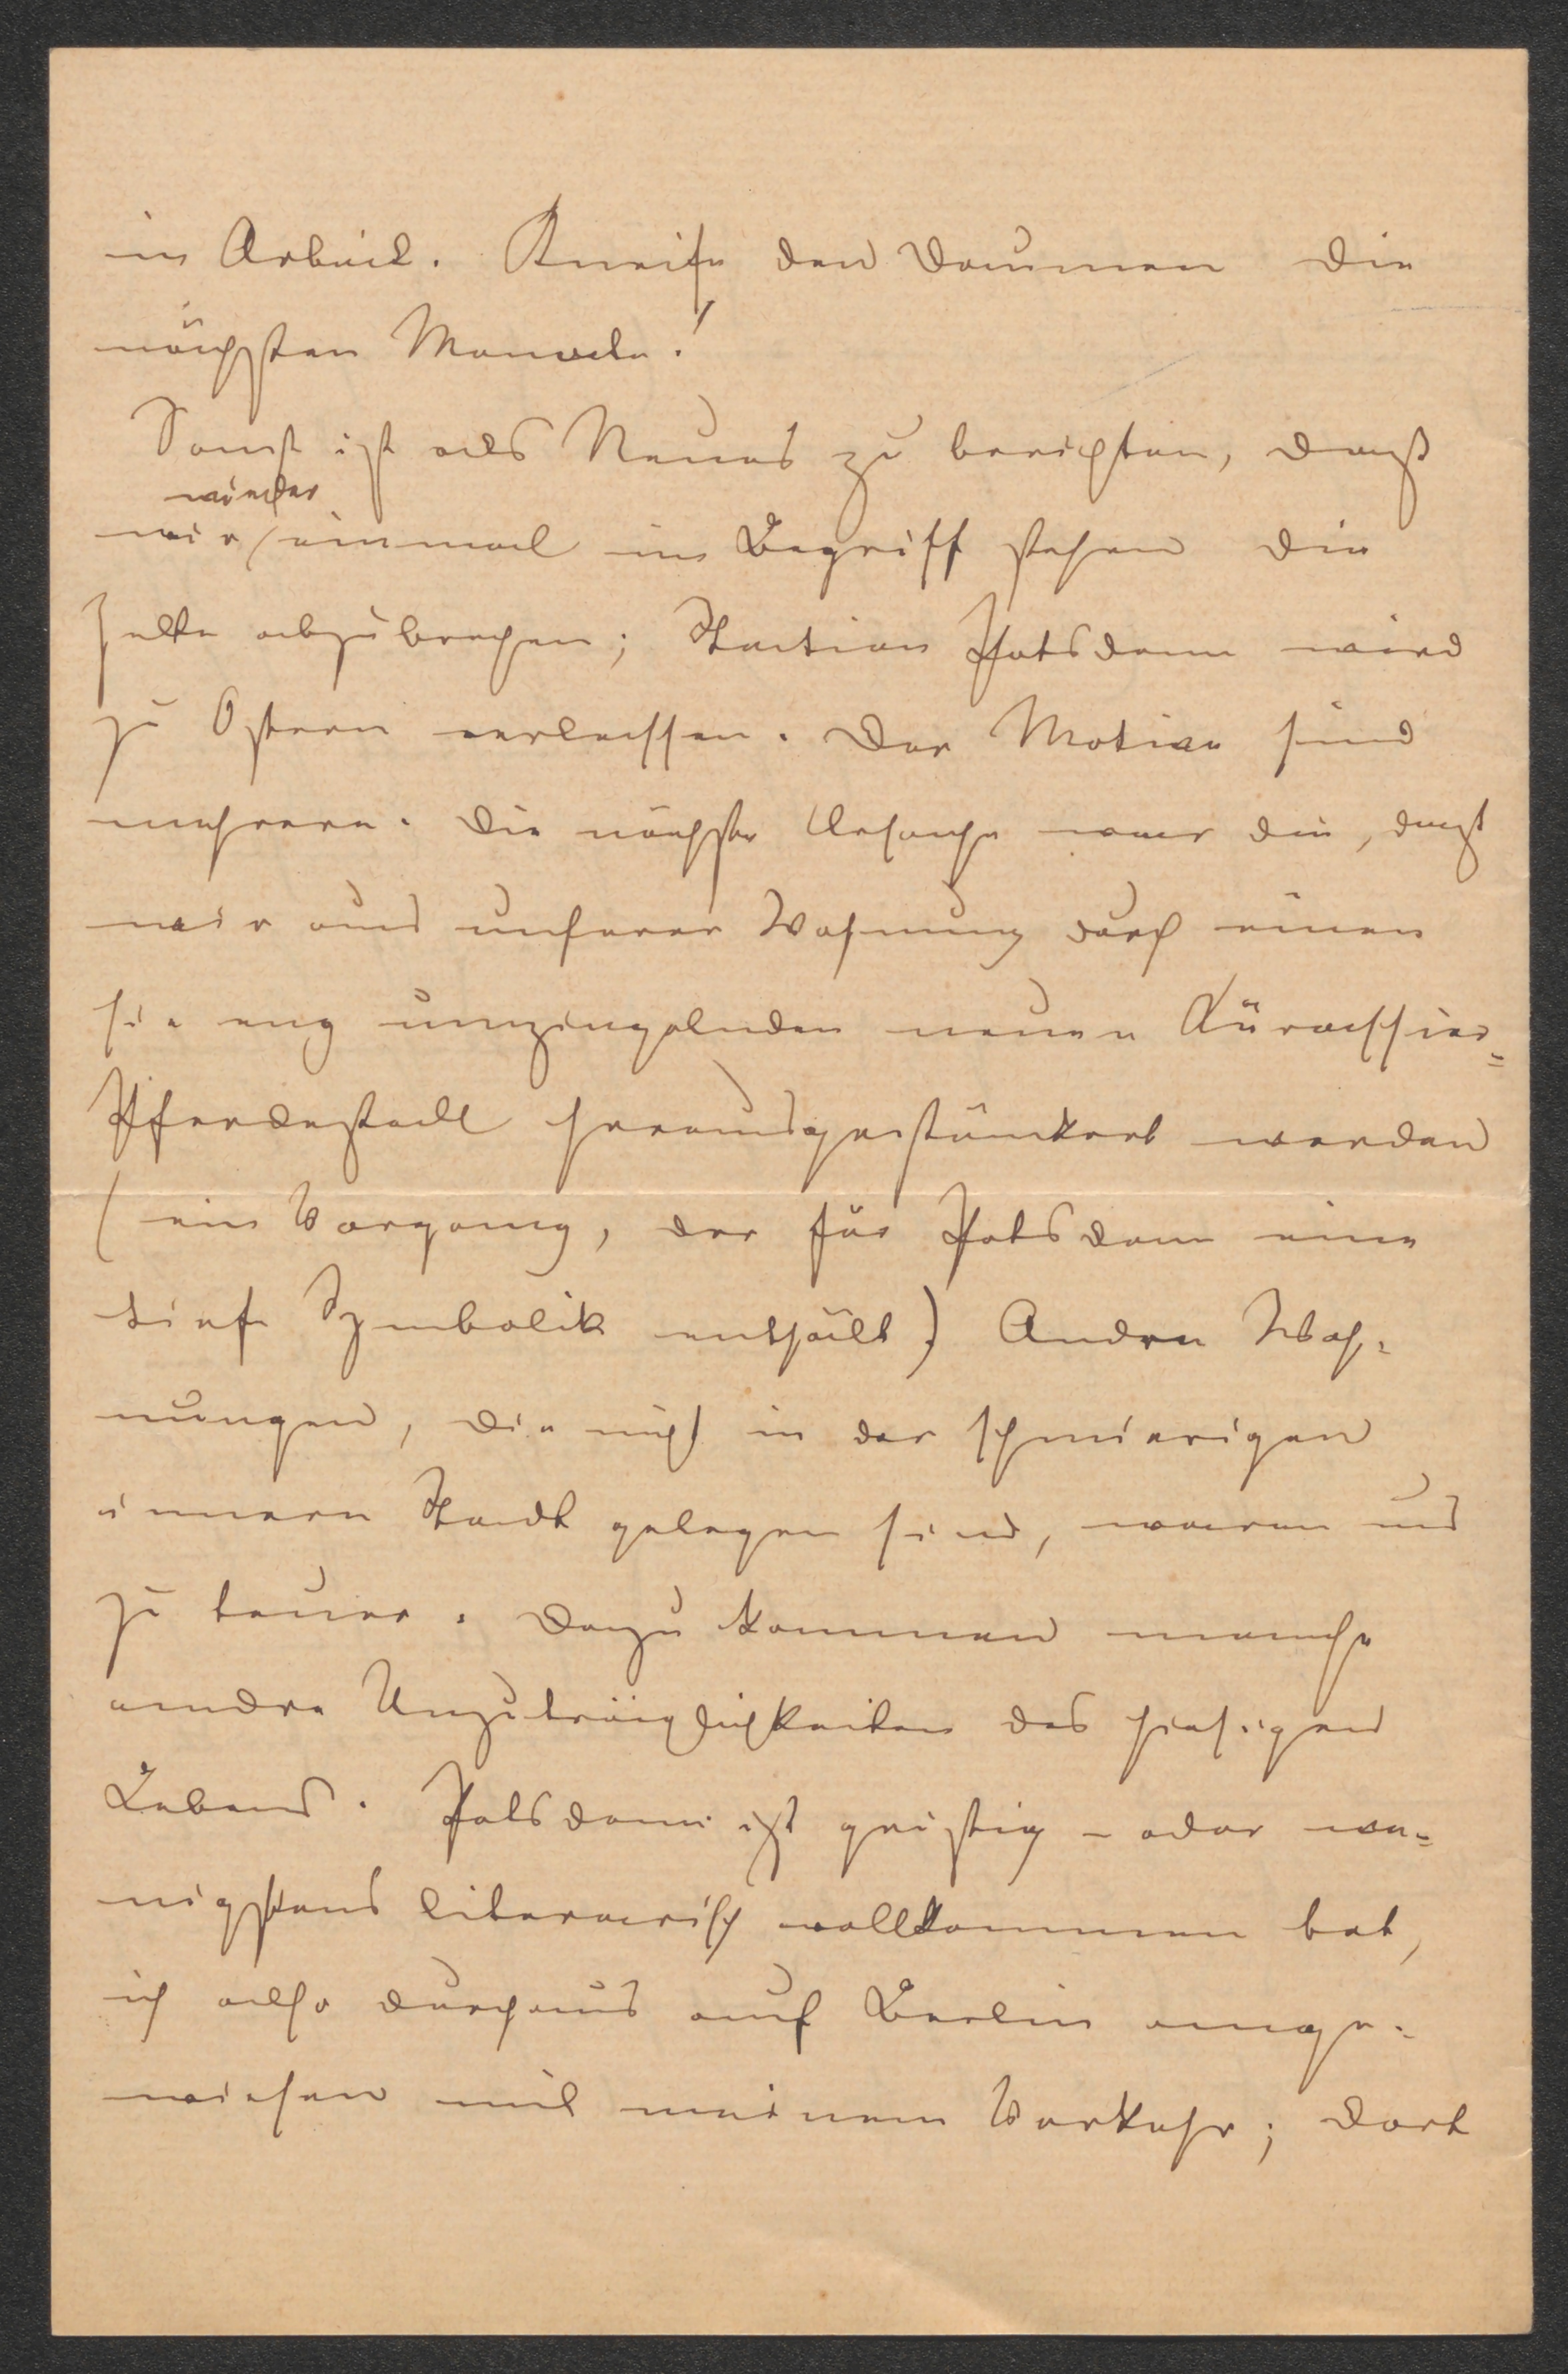 in Arbeit. Kneife den Daumen die
nächsten Monate!
Sonst ist als Neues zu berichten, dass
wieder
wir einmal im Begriff stehen die
Zelte abzubrechen; Station Potsdam wird
zu Ostern verlassen. Der Motive sind
mehrere. Die nächste Ursache war die, dass
wir aus unserer Wohnung durch einen
sie eng umzingelnden neuen Kürassier-
Pferdestall herausgestänkert werden
(ein Vorgang, der für Potsdam eine
tiefe Symbolik enthält) Andre Woh-
nungen, die nicht in der schmierigen
innern Stadt gelegen sind, waren uns
zu teuer. Dazu kommen manche
andre Unzuträglichkeiten des hiesigen
Lebens. Potsdam ist geistig - oder we-
nigstens literarisch vollkommen tot,
ich also durchaus auf Berlin ange-
wiesen mit meinem Verkehr; dort